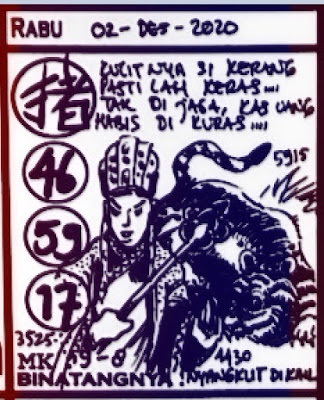 RABU 02-DES-2020
KULITNYA SI KERANG
PASTI LAH KERAS....
TAK DI JAGA, KAS UANG
HABIS DI KURAS....
猪
46
59
17
5915
3525
1130
MK 9-8
BINATANGNYA : NYANGKUT DI KAIL